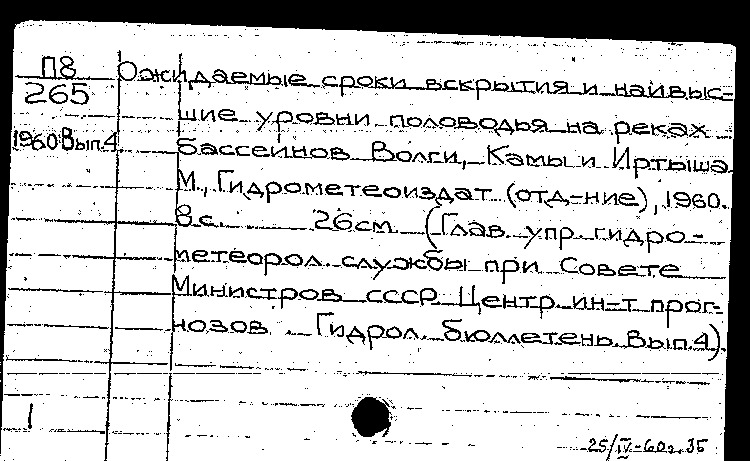 П8
265
1960 Вып.4
Ожидаемые сроки вскрытия и наивыс-
шие уровни половодья на реках
бассейнов Волги, Камы и Иртыша
М., Гидрометеоиздат (отд-ние), 1960.
8 с. 26 см (Глав. упр. гидро-
метеорол. службы при Совете
Министров СССР. Центр. ин-т прог-
нозов. Гидрол. бюллетень. Вып.4).
1
25/IV-60г.